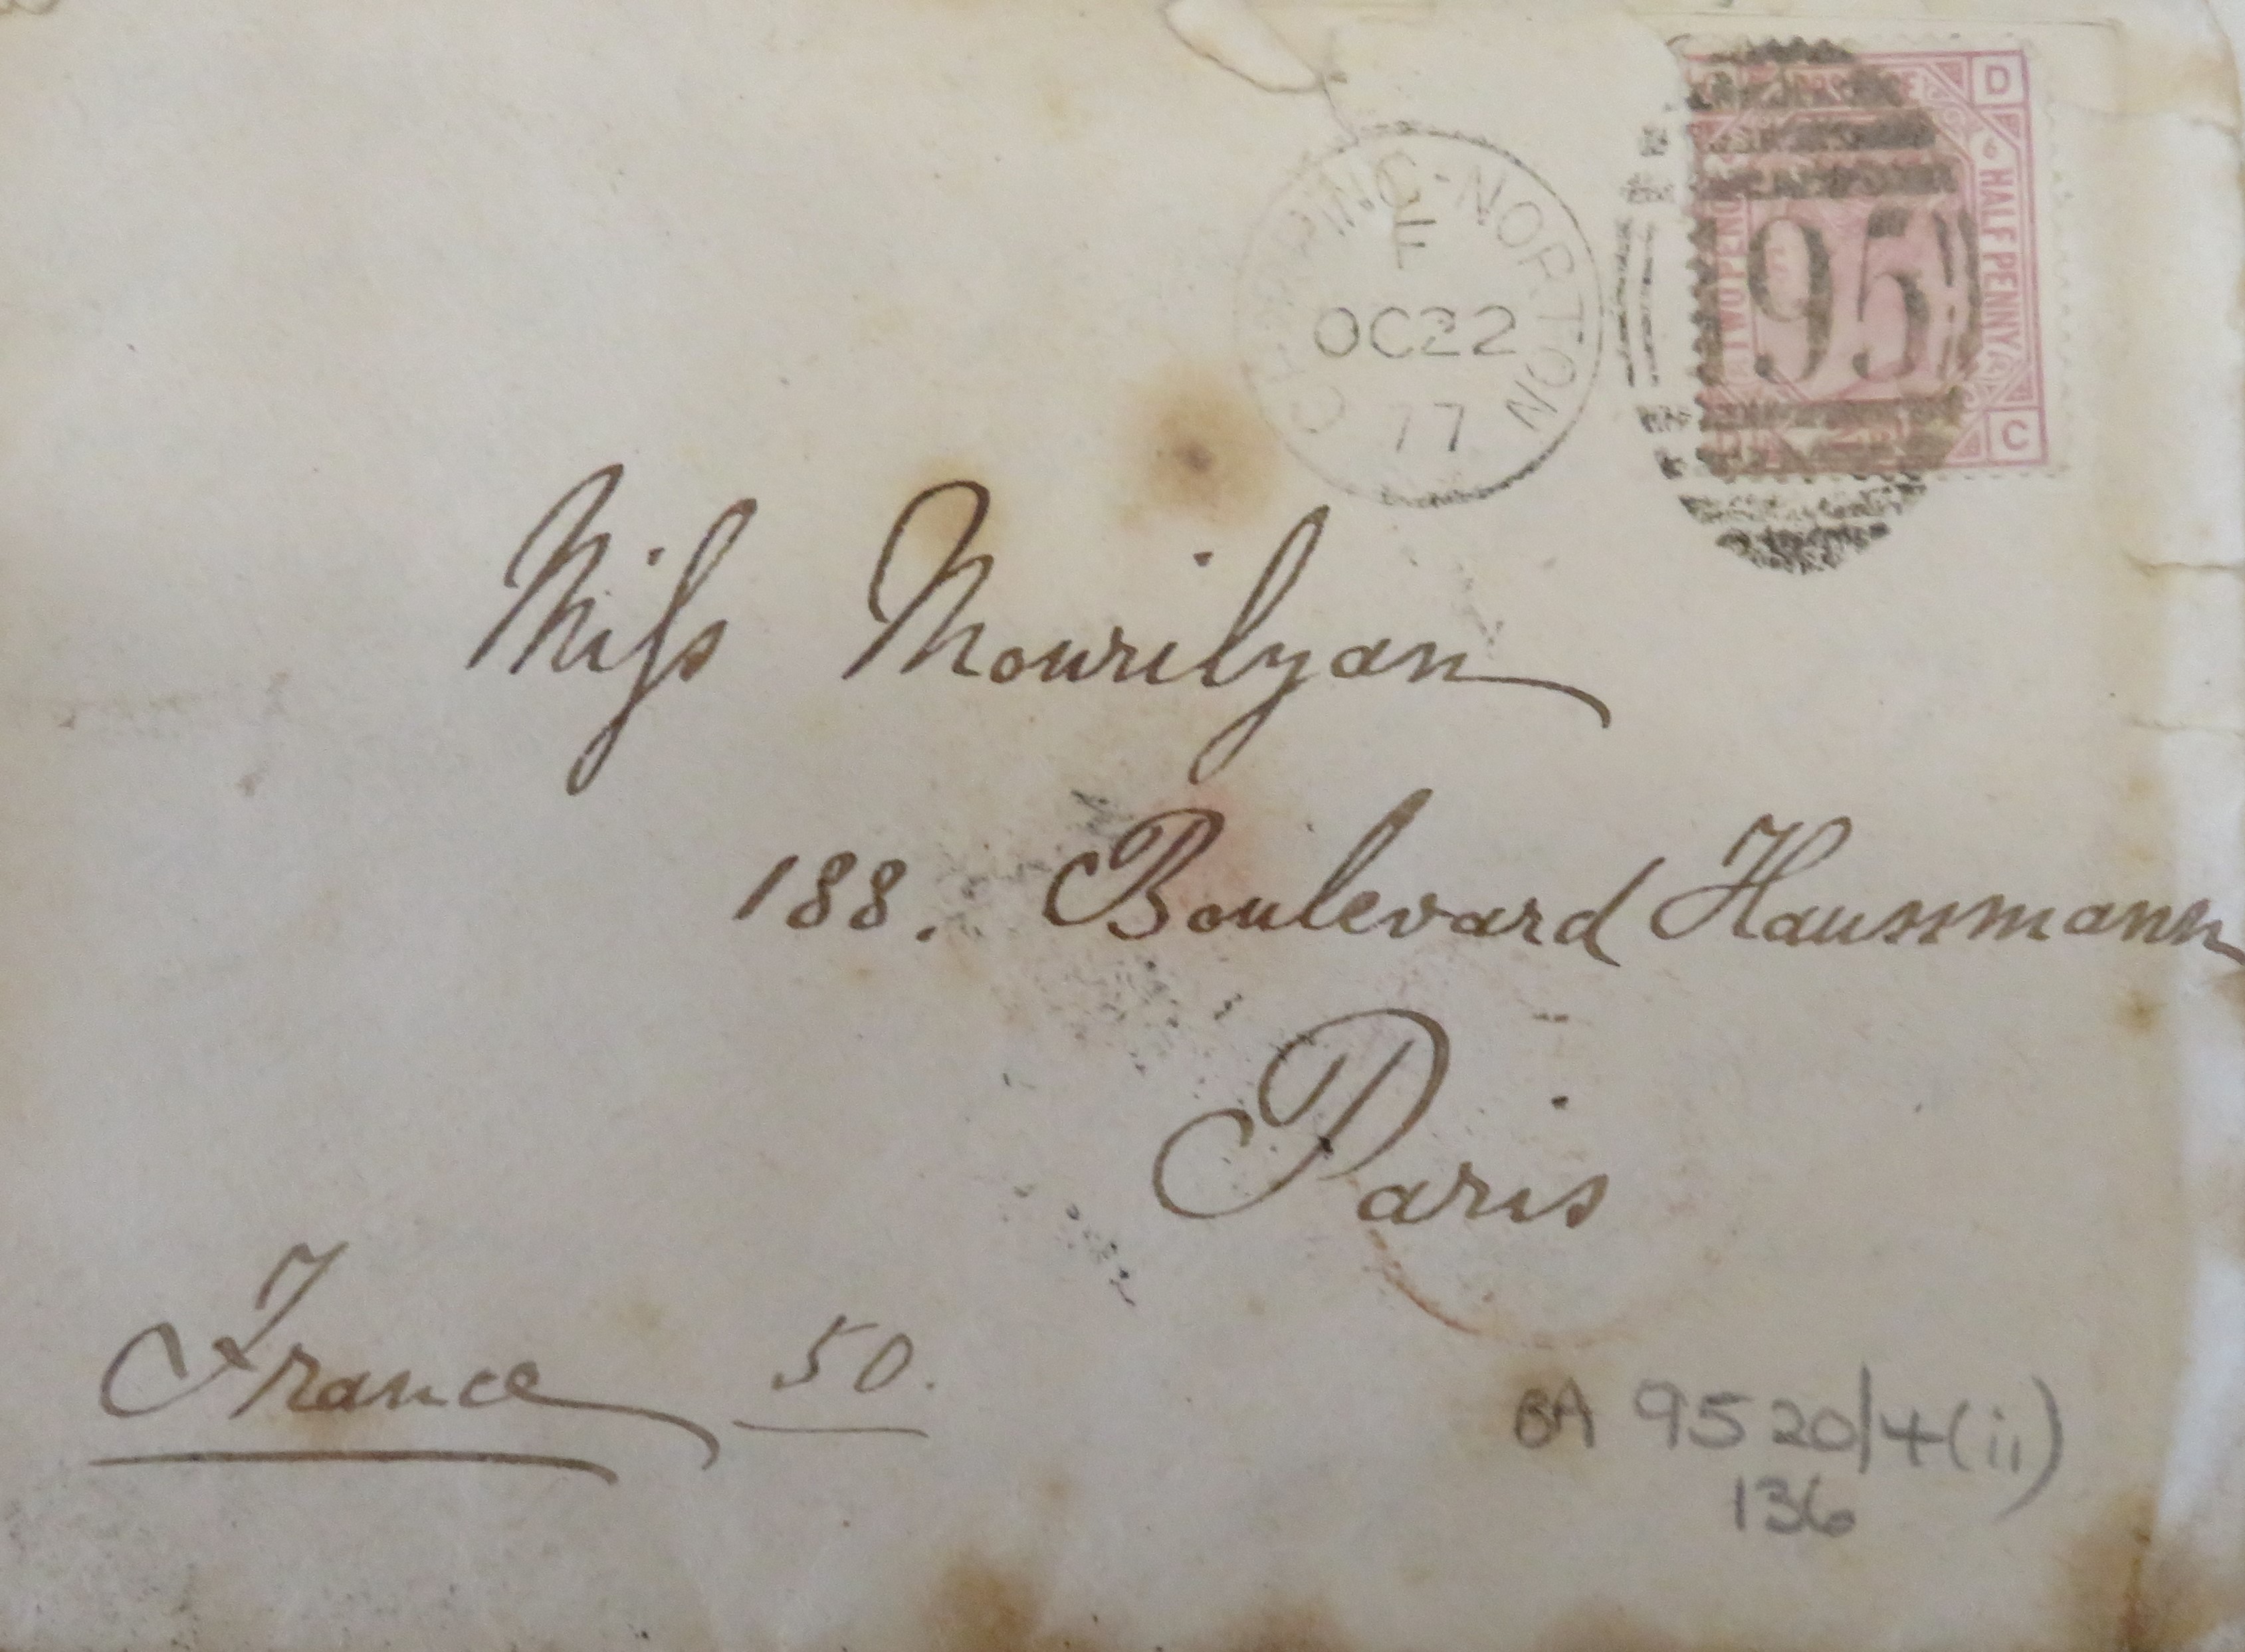 CHIPPING-NORTON
F
OC22
77
D
6
HALF PENNY
TWO PENCE
95
C
Miss Mourilyan
188. Boulevard Haussmann
Paris
France 50.
BA 9520/4(ii)
136